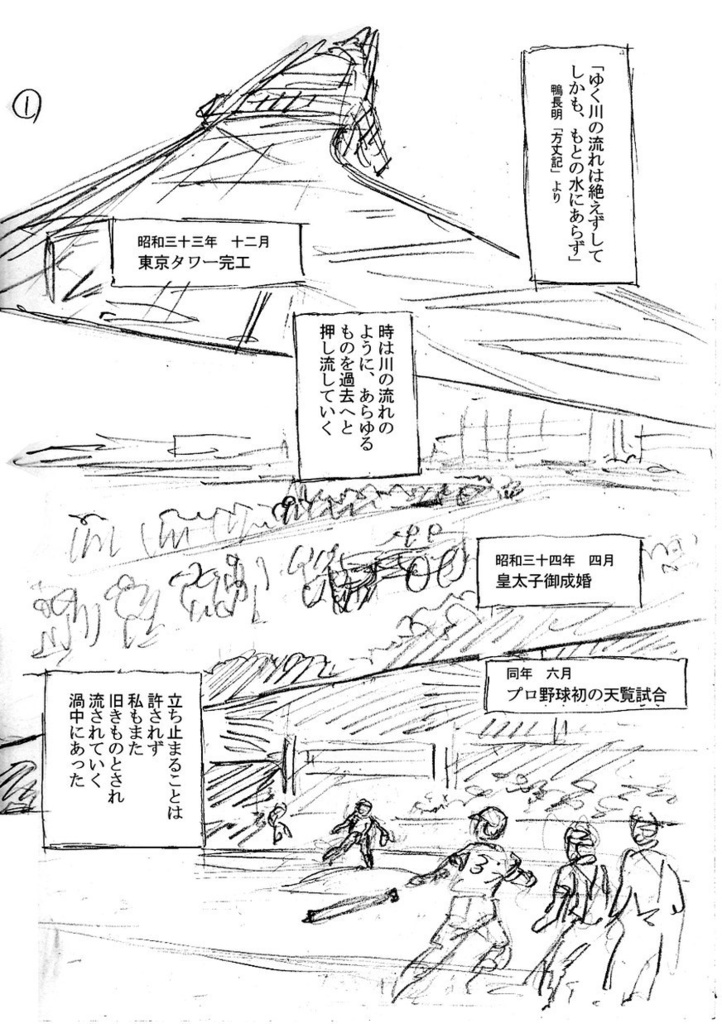 ①
「ゆく川の流れは絶えずして
しかも、もとの水にあらず」
鴨長明「方丈記」より
昭和三十三年 十二月
東京タワー完工
時は川の流れの
ように、あらゆる
ものを過去へと
押し流していく
昭和三十四年 四月
皇太子御成婚
同年 六月
プロ野球初の天覧試合
立ち止まることは
許されず
私もまた
旧きものとされ
流されていく
渦中にあった
3